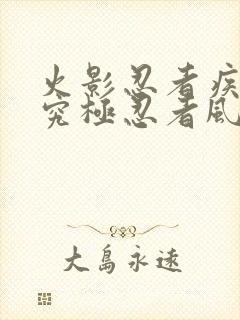 火影忍者疾
究極忍者風
大島永遠